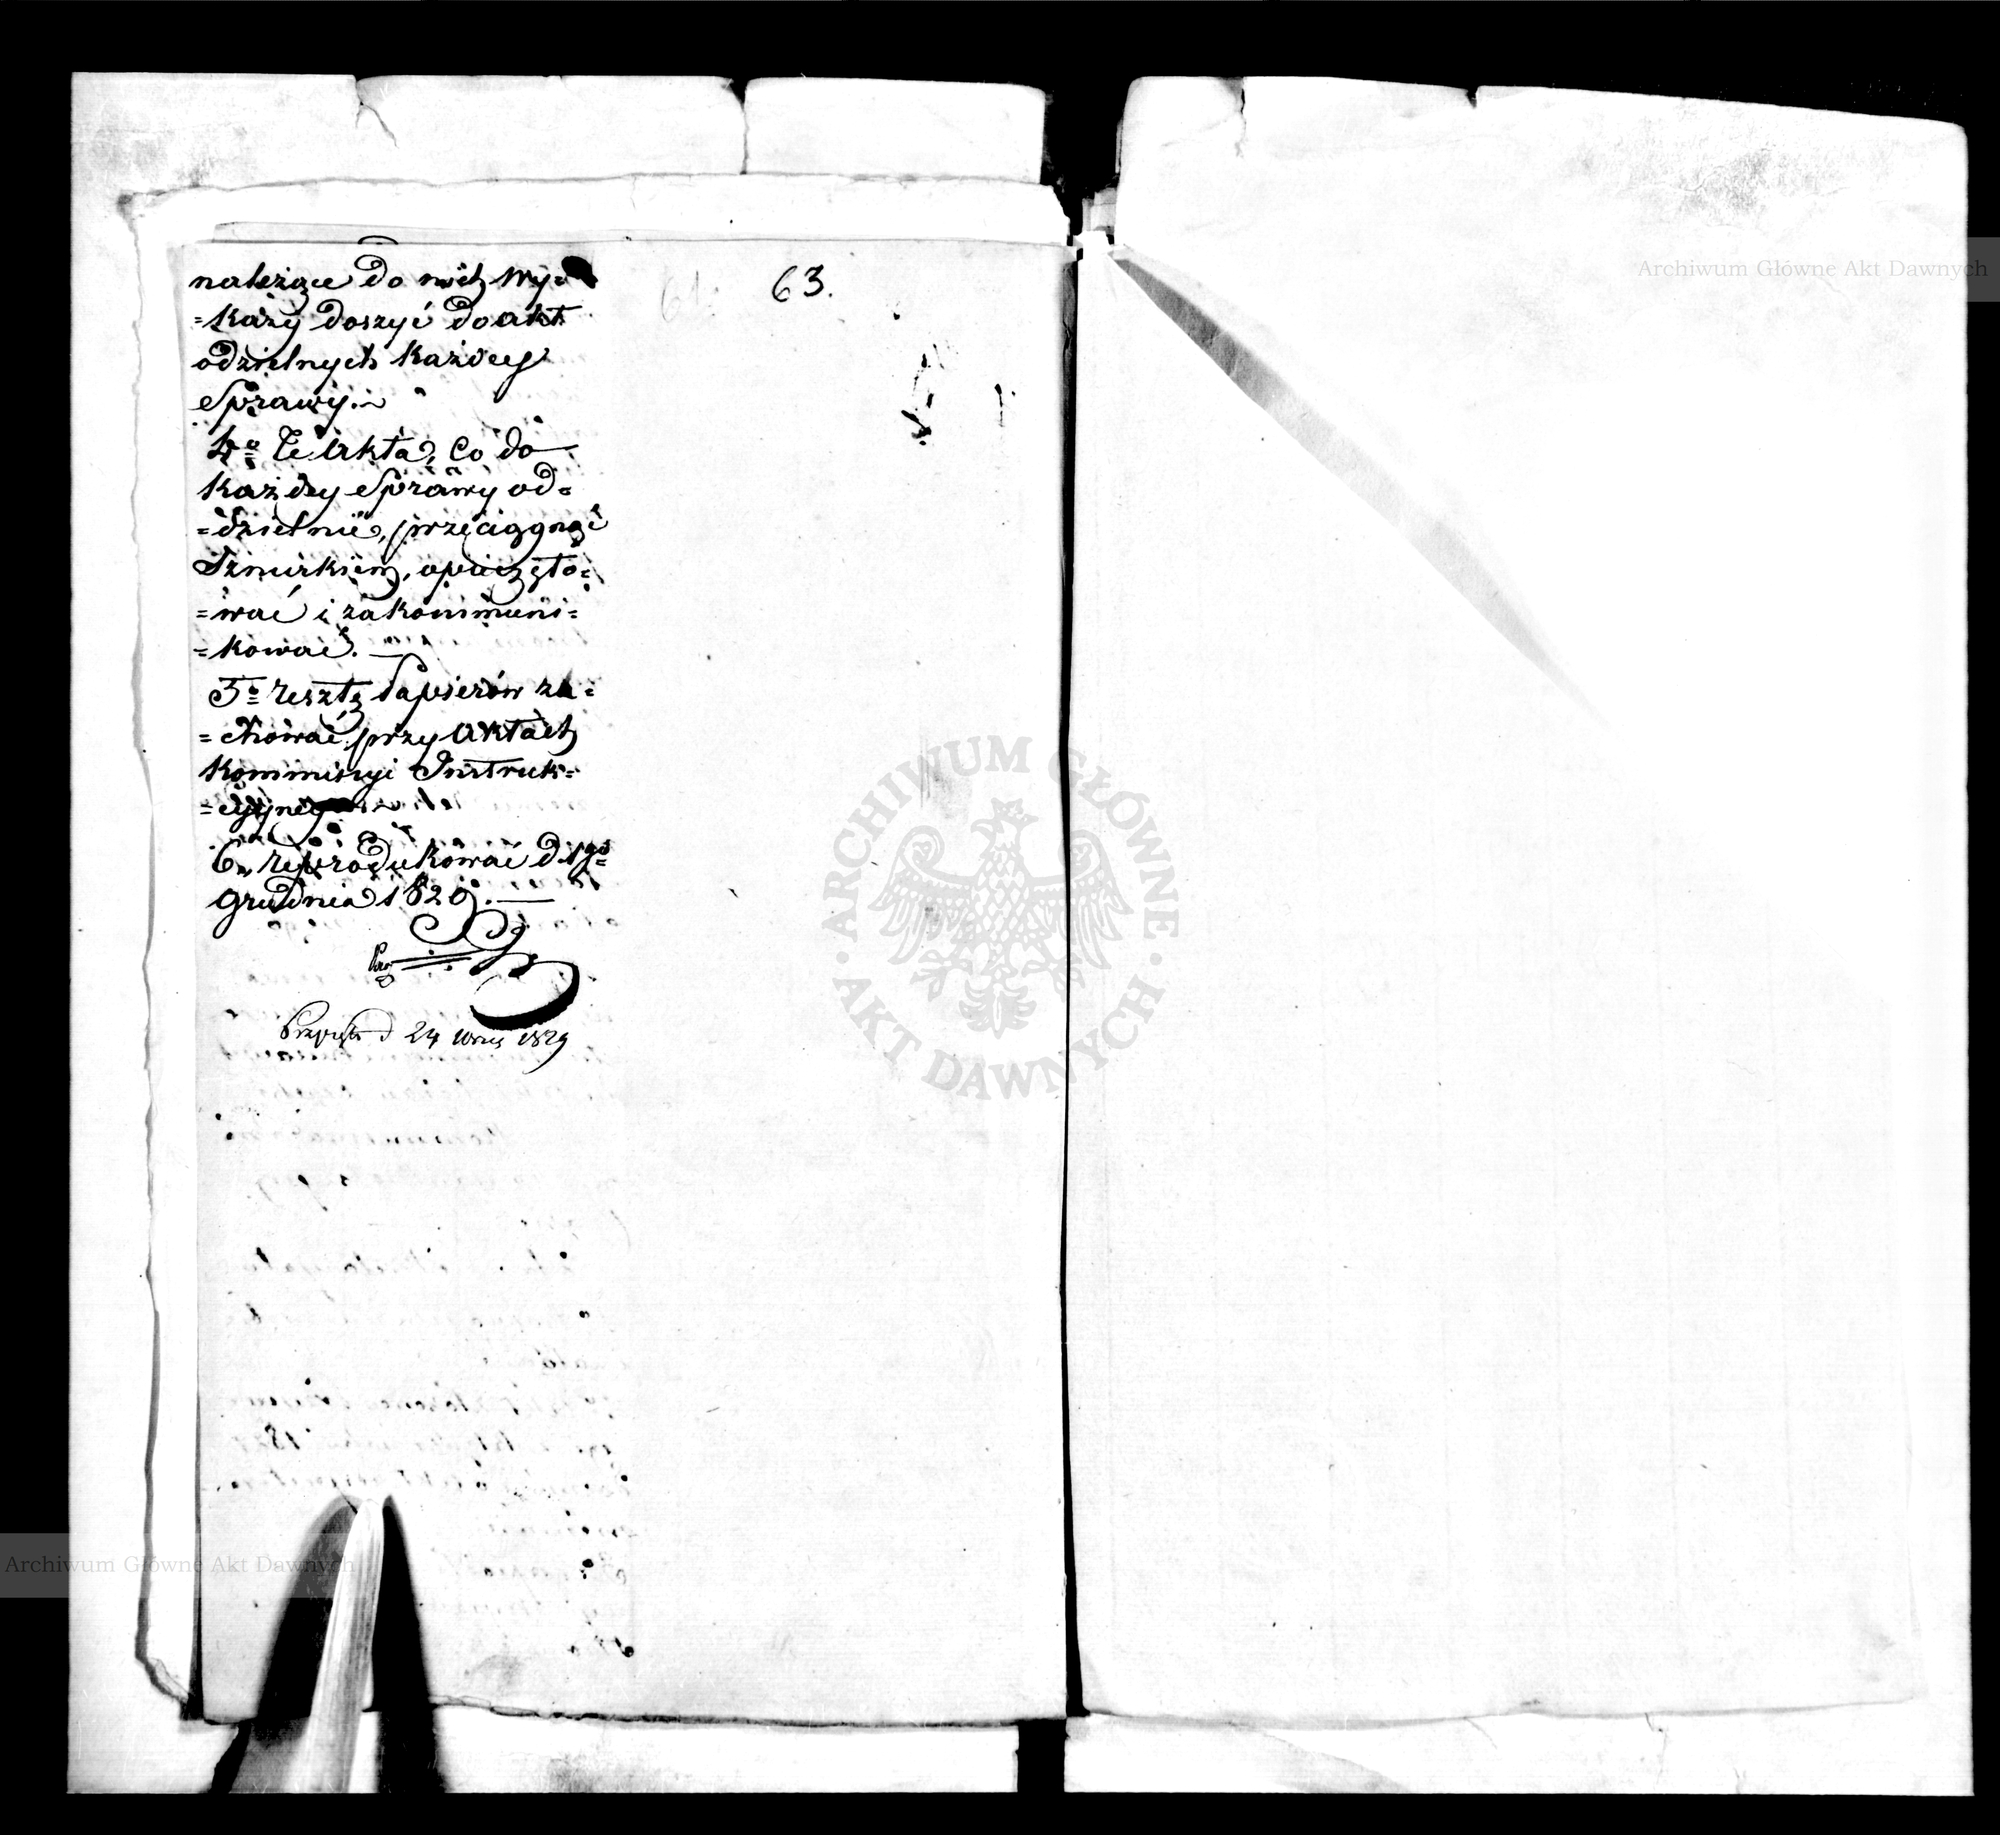 63.
należące do nich wy=
=kazy doszyć do akt
odzielnych każdey
Sprawy.
4o Te Akta, co do
każdey Sprawy od=
=dzielnie, przeciągnąć
Sznurkiem, opieczęto=
=wać i zakommuni=
=kować. —
5o resztę Papierów za=
=chować przy Aktach
Kommissyi Instruk=
=cyyney
6o reprodukować d. 1go
Grudnia 1829. —
24 1829
Archiwum Główne Akt Dawnych
ARCHIWUM GŁÓWNE · AKT DAWNYCH ·
Archiwum Główne Akt Dawnych